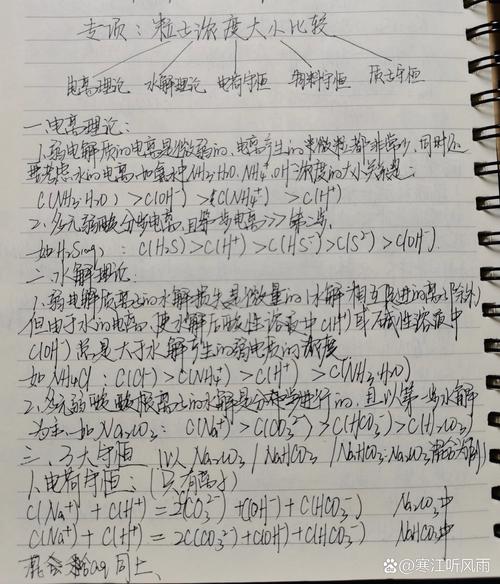 专项：粒子浓度大小比较
电离理论 水解理论 电荷守恒 物料守恒 质子守恒
一、电离理论：
1.弱电解质的电离是微弱的，电离产生的微粒都非常少，同时还
要考虑水的电离，如氨水中NH₃·H₂O.NH₄⁺.OH⁻浓度的大小关系是：
C(NH₃·H₂O) > C(OH⁻) > C(NH₄⁺) > C(H⁺)
2.多元弱酸分步电离，且第一步电离>>>第二步
如H₂S(aq)： C(H₂S) > C(H⁺) > C(HS⁻) > C(S²⁻) > C(OH⁻)
二、水解理论：
1.弱电解质离子的水解损失是微量的(水解相互促进的离子除外)
但由于水的电离，使水解后酸性溶液中C(H⁺)或碱性溶液中
C(OH⁻)总是大于水解产生的弱电质的浓度
如NH₄Cl：C(Cl⁻) > C(NH₄⁺) > C(H⁺) > C(NH₃·H₂O)
2.多元弱酸酸根离子的水解是分步进行的，且以第一步水解
为主.如Na₂CO₃： C(Na⁺) > C(CO₃²⁻) > C(HCO₃⁻) > C(H₂CO₃)
三、3大守恒 (以Na₂CO₃ / NaHCO₃ / NaHCO₃·Na₂CO₃混合为例)
1.电荷守恒：(只有离子)
C(Na⁺) + C(H⁺) = 2C(CO₃²⁻) + C(OH⁻) + C(HCO₃⁻) Na₂CO₃中
C(Na⁺) + C(H⁺) = 2C(CO₃²⁻) + C(OH⁻) + C(HCO₃⁻) NaHCO₃中
混合 aq 同上、
Bai百家号/寒江听风雨